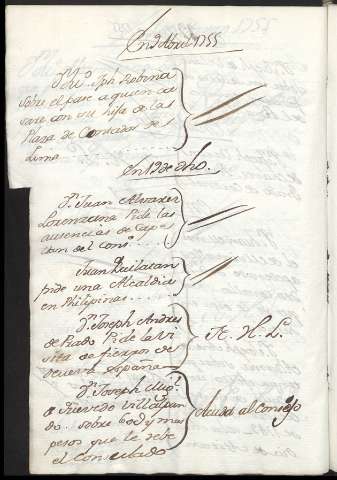 En 9 Abril 1755
Dn. Jph Robina
sobre el pase a quien ca
sare con su hija de las
Plaza de Contador de
Lima
En 12 de dho.
Dn. Juan Alvarez
Lorenzana Pide las
ausencias de Cape
llan del Conso.
Juan
pide una Alcaldia
en Philipinas
Dn. Joseph Andres
de Prado Pide la Vi
sita de fierros de
Nueva España
F. H. L.
Dn. Joseph Migl.
de Quevedo Villalpan
do sobre 60d y mas
pesos que le debe
el Consulado
Acuda al Consejo